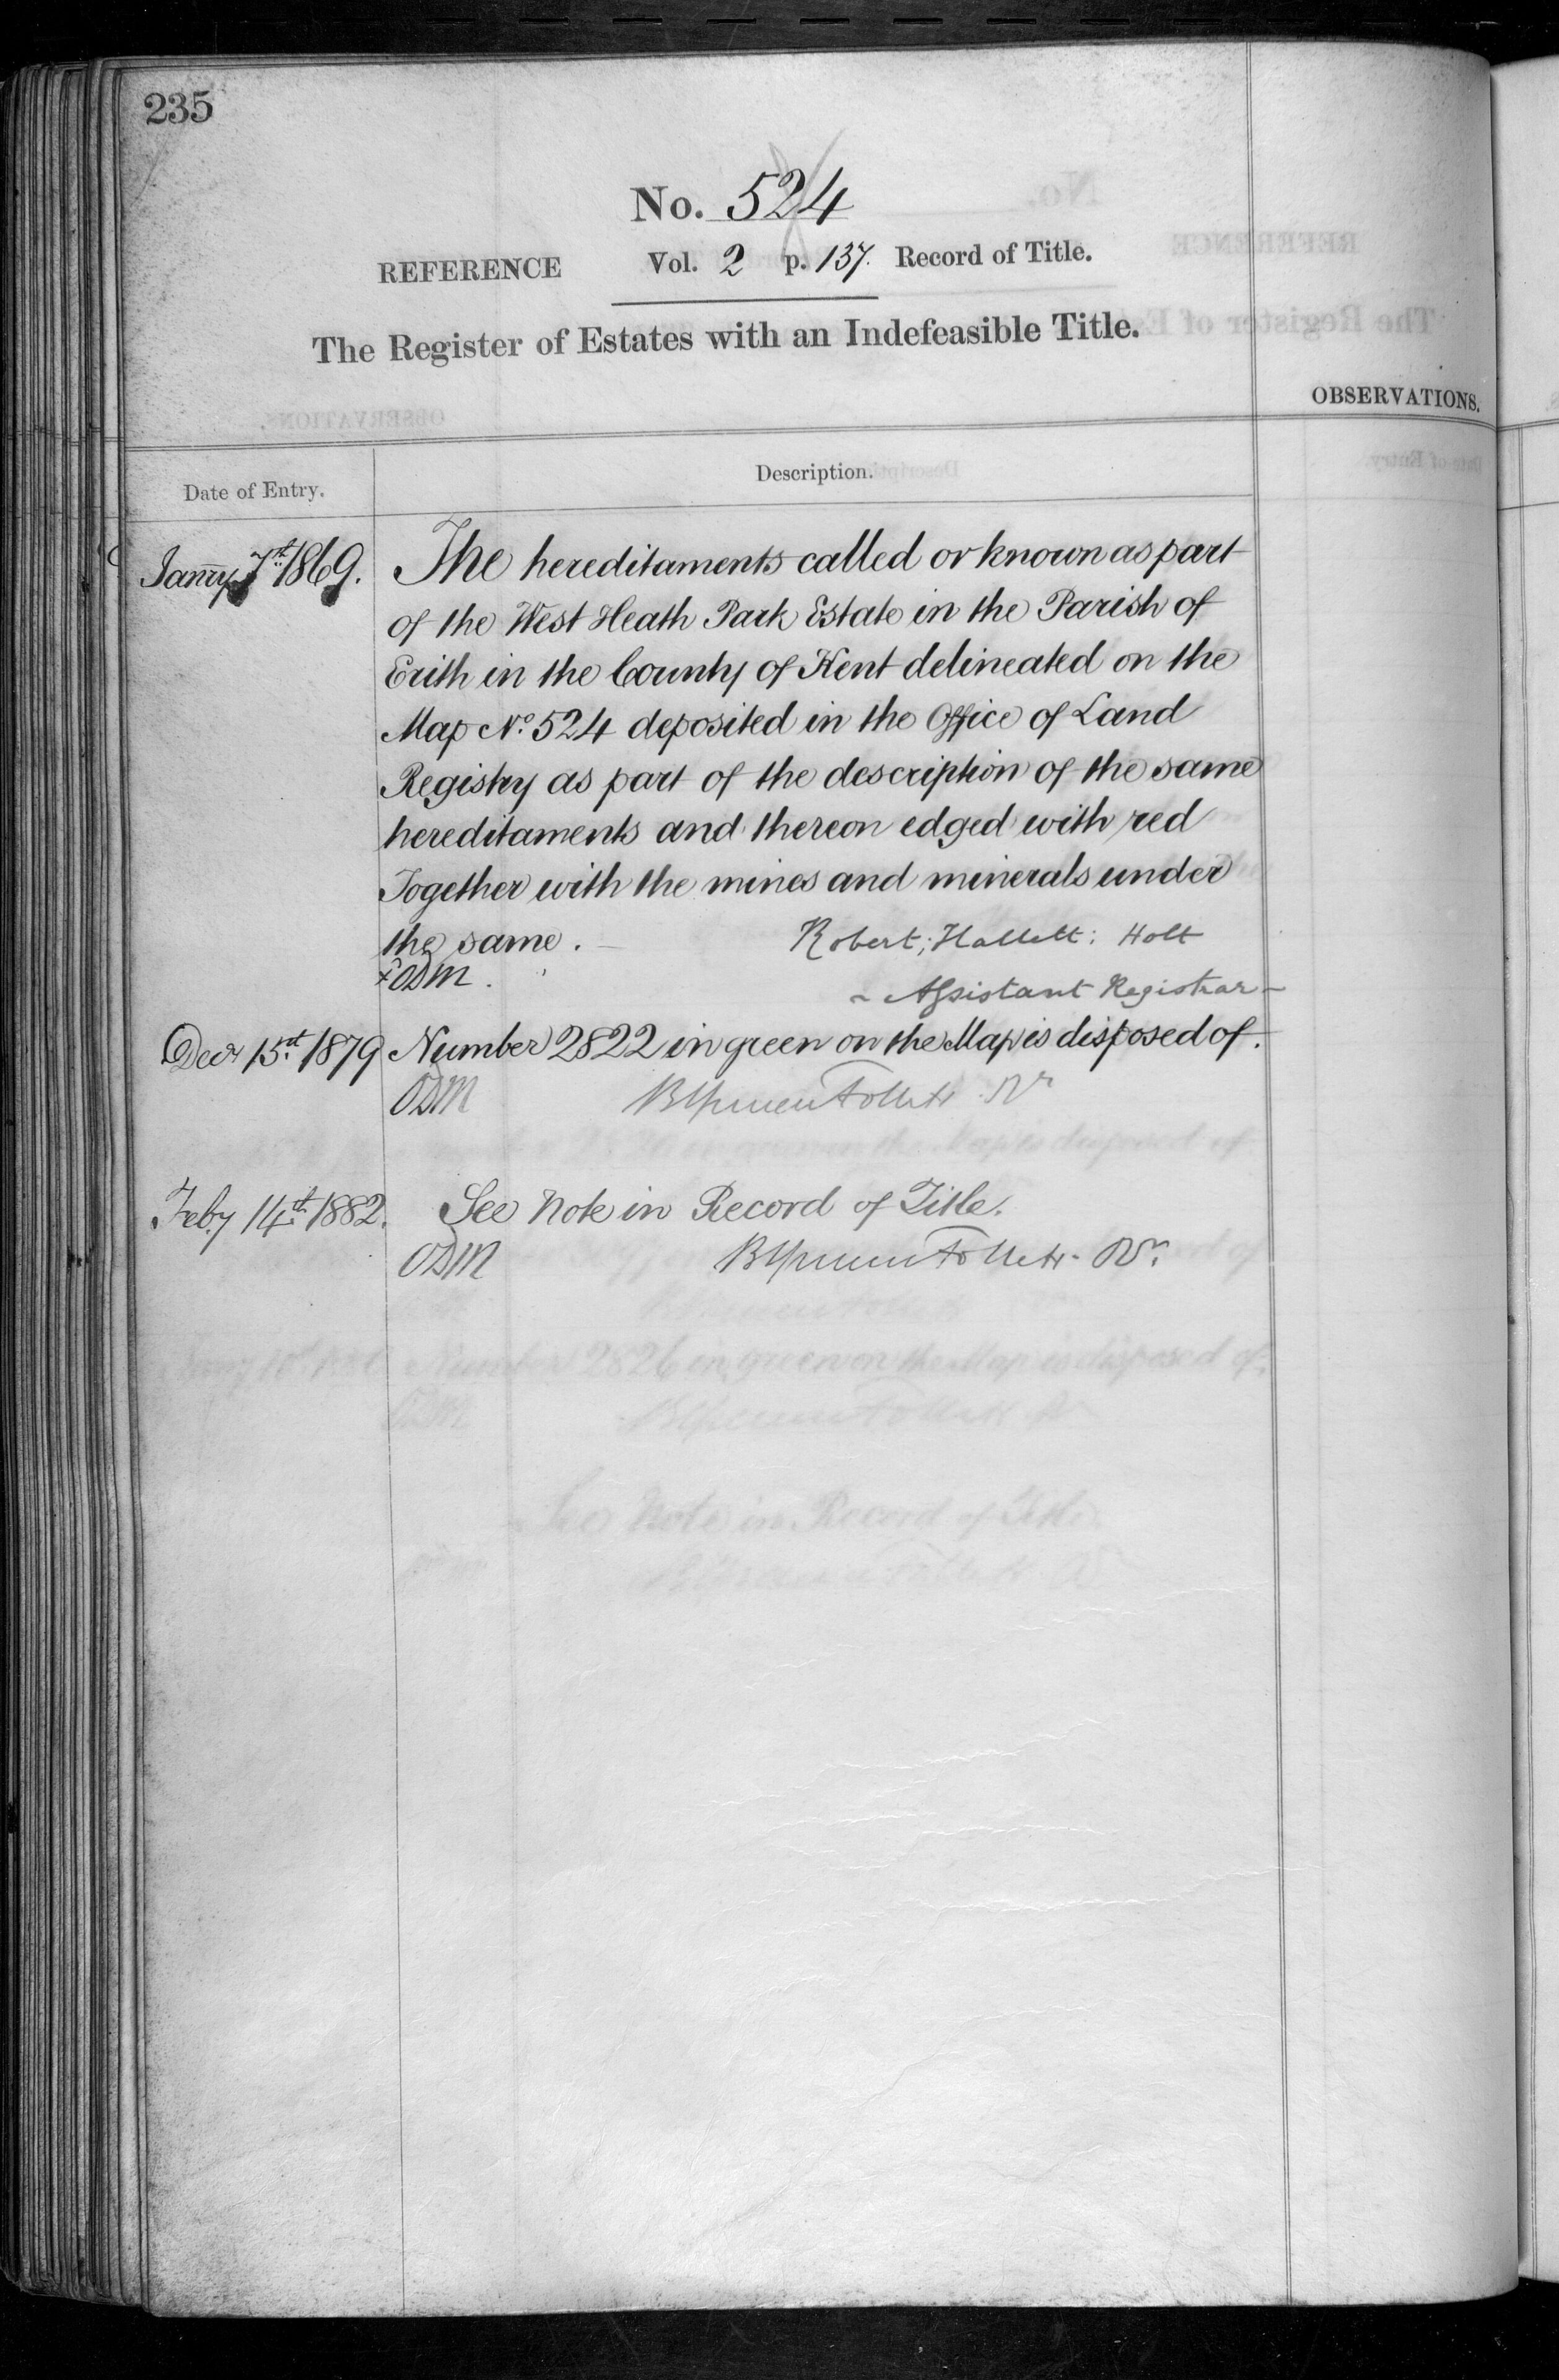 235
No. 524
REFERENCE Vol. 2 p. 137. Record of Title.
The Register of Estates with an Indefeasible Title.
OBSERVATIONS.
Date of Entry.
Description.
Janry 7th 1869. The hereditaments called or known as part
of the West Heath Park Estate in the Parish of
Erith in the County of Kent delineated on the
Map No. 524 deposited in the Office of Land
Registry as part of the description of the same
hereditaments and thereon edged with red
Together with the mines and minerals under
the same. Robert; Hallett: Holt
ODM. Assistant Registrar
Decr 15th 1879 Number 2822 in green on the Map is disposed of.
ODM Follett Rr
Feby 14th 1882. See Note in Record of Title.
ODM Follett Rr.